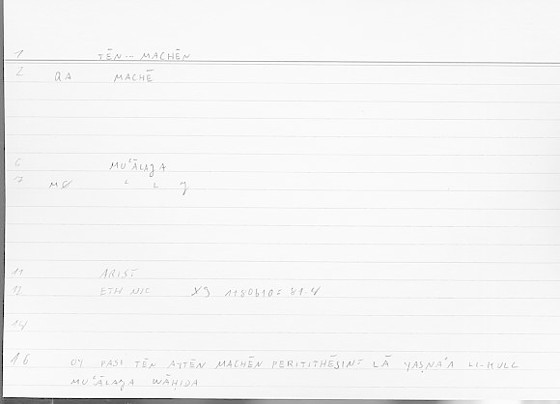 1 TĒN -- MACHĒN
2 QA MACHĒ
6 MUʿĀLAǦA
7 MØ ʿ L Ǧ
11 ARIST
12 ETH NIC
14
16 OY PASI TĒN AYTĒN MACHĒN PERITITHĒSIN= LĀ YAṢNAʿA LI-KULL
MUʿĀLAǦA WĀḤIDA